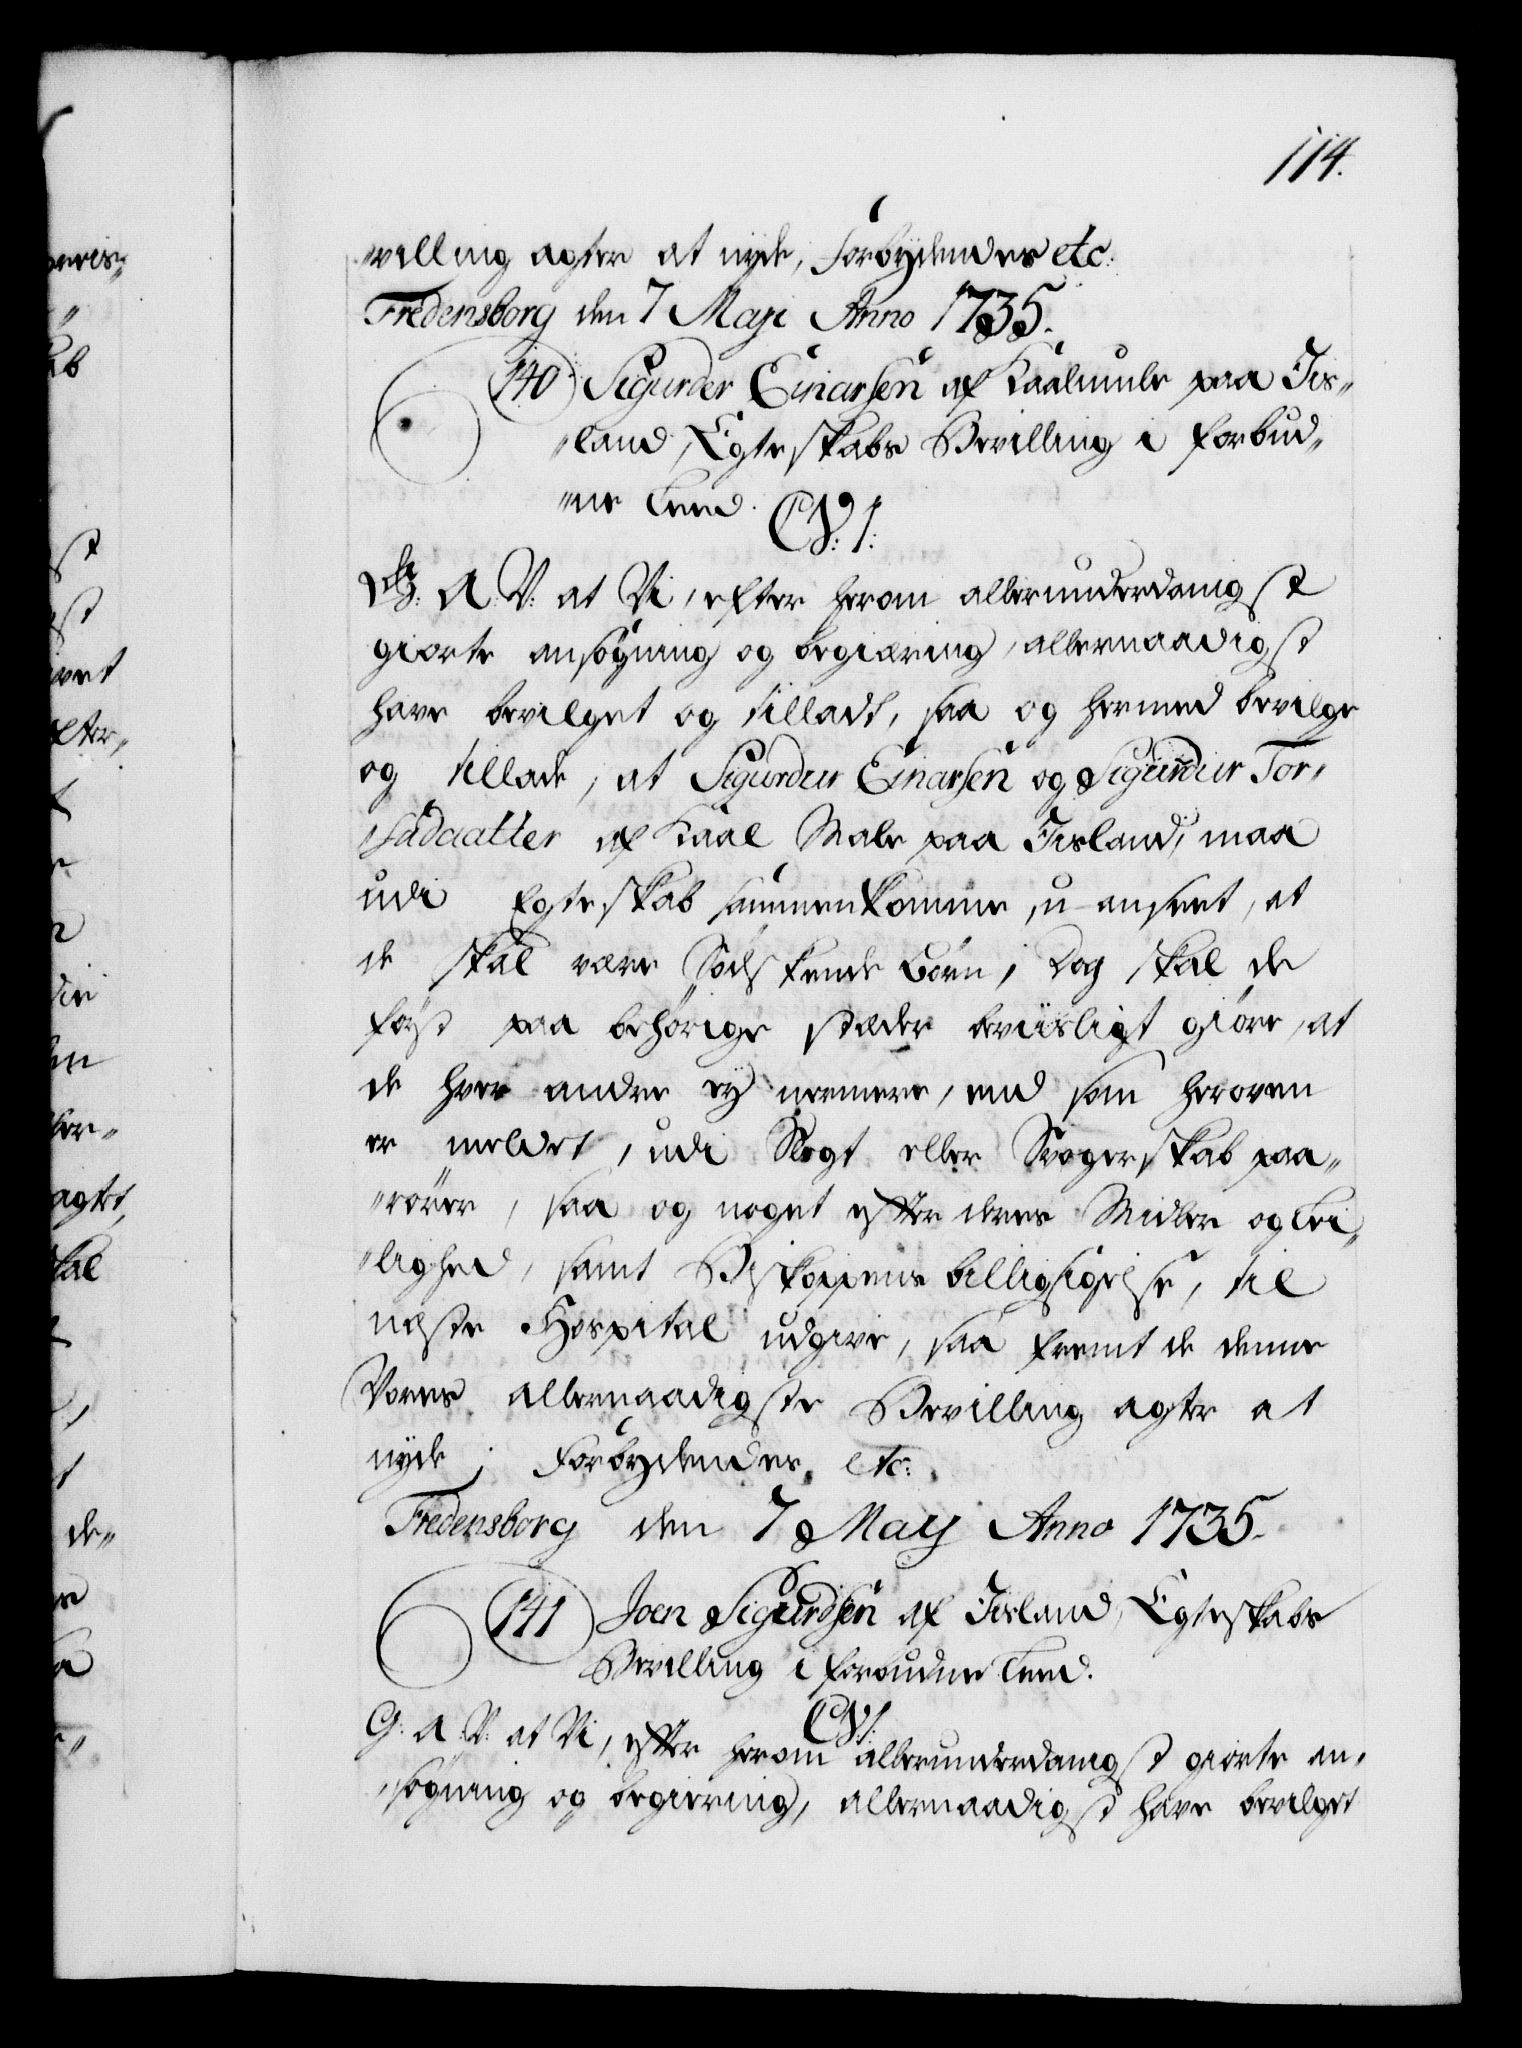 114.
"villing agter at nyde, Forbydendes etc:
Fredensborg den 7 Maji Anno 1735.
140 Sigurder Einarsen af Kaalmule paa Iis„
„land, Egteskabs Bevilling i forbud„
„ne Leed.
C. V. I:
G: A: V: at Vi, efter herom allerunderdanigst
giorte ansøgning og begiæring, allernaadigst
have bevilget og tilladt, saa og hermed bevilge
og tillade, at Sigurdur Einarsen og Sigurdur Tor„
„sadaatter af Kaal Male paa Iisland, maa
udi Egteskab sammenkomme, u-anseet, at
de skal være Södskende Börn, Dog skal de
först paa behörige stæder beviisligt giöre, at
de hver andre ey nermere, end som heroven
er meldet, udi Slegt eller Svogerskab paa„
„rörer, saa og noget efter deres Midler og Lei„
„lighed, samt Biskoppens billigsigelse, til
neste Hospital udgive, saa fremt de denne
Vores allernaadigste Bevilling agter at
nyde; Forbydendes etc:
Fredensborg den 7 Maij Anno 1735.
141 Joen Sigurdsen af Iisland, Egteskabs
Bevilling i forbudne Leed.
C. V. I:
G: A: V: at Vi, efter herom allerunderdanigst giorte an„
„søgning og begiering, allernaadigst have bevilget